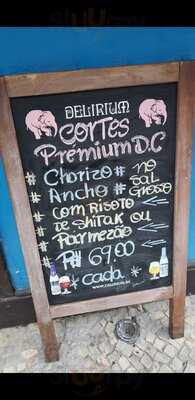 DELIRIUM
CORTES
Premium D.C
# Chorizo # no
# Ancho # sal grosso
# com Risoto
# de Shitak ou
# Parmezão
# R$ 69,00
cada